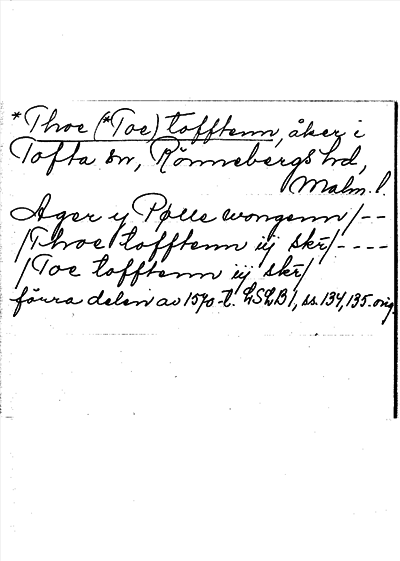 *Thoe (*Toe) tofftenn, åker i
Tofta sn, Rönnebergs hd,
Malm. l.
Ager y Pølle wongenn /--
/Thoe tofftenn iij skr/----
/Toe tofftenn iij skr/
förra delen av 1570-t. LSLB 1, ss. 134, 135. orig.